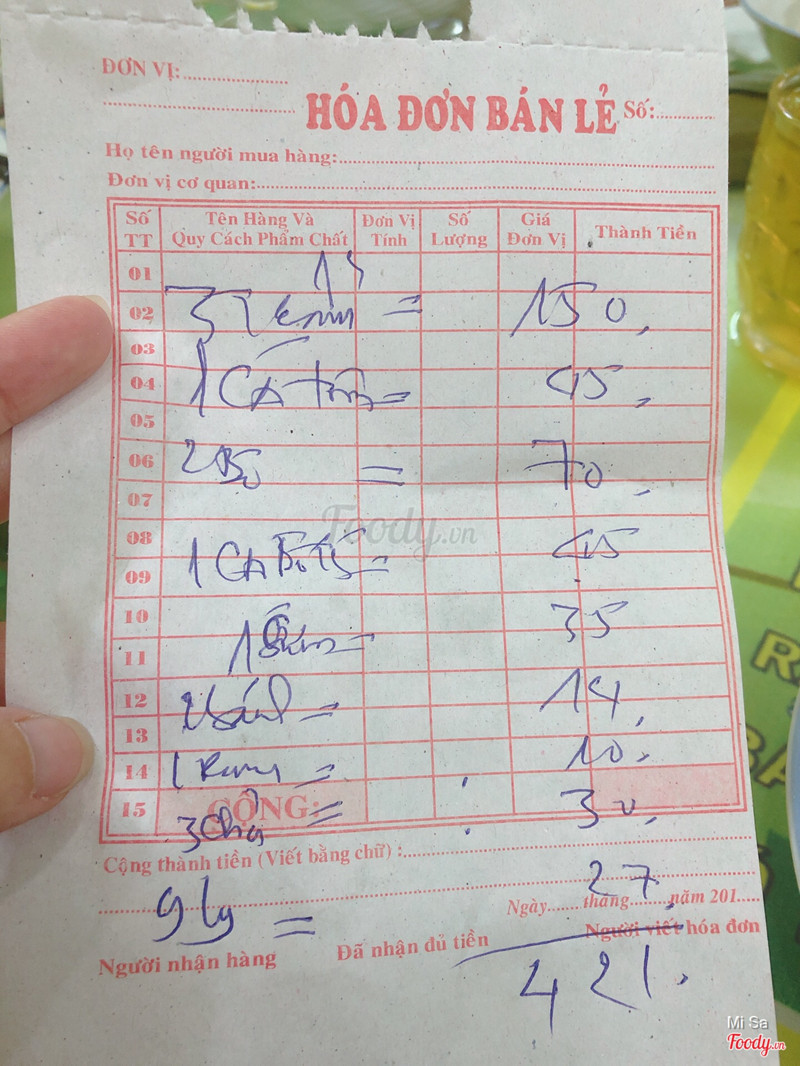 ĐƠN VỊ:
HÓA ĐƠN BÁN LẺ Số:
Họ tên người mua hàng:
Đơn vị cơ quan:
Số TT Tên Hàng Và Quy Cách Phẩm Chất Đơn Vị Tính Số Lượng Giá Đơn Vị Thành Tiền
01
02 3 = 150,
03
04 1 CÁ = 45,
05
06 2 Bò = 70,
07
08 1 CÁ = 45
09
10 1 = 35
11
12 = 14,
13
14 1 Rau = 10.
15 CỘNG: 3 chả = 30,
Cộng thành tiền (Viết bằng chữ) :
9 ly = 27,
Ngày tháng năm 201
Người nhận hàng Đã nhận đủ tiền Người viết hóa đơn
421.
Foody.vn
Mi Sa
Foody.vn